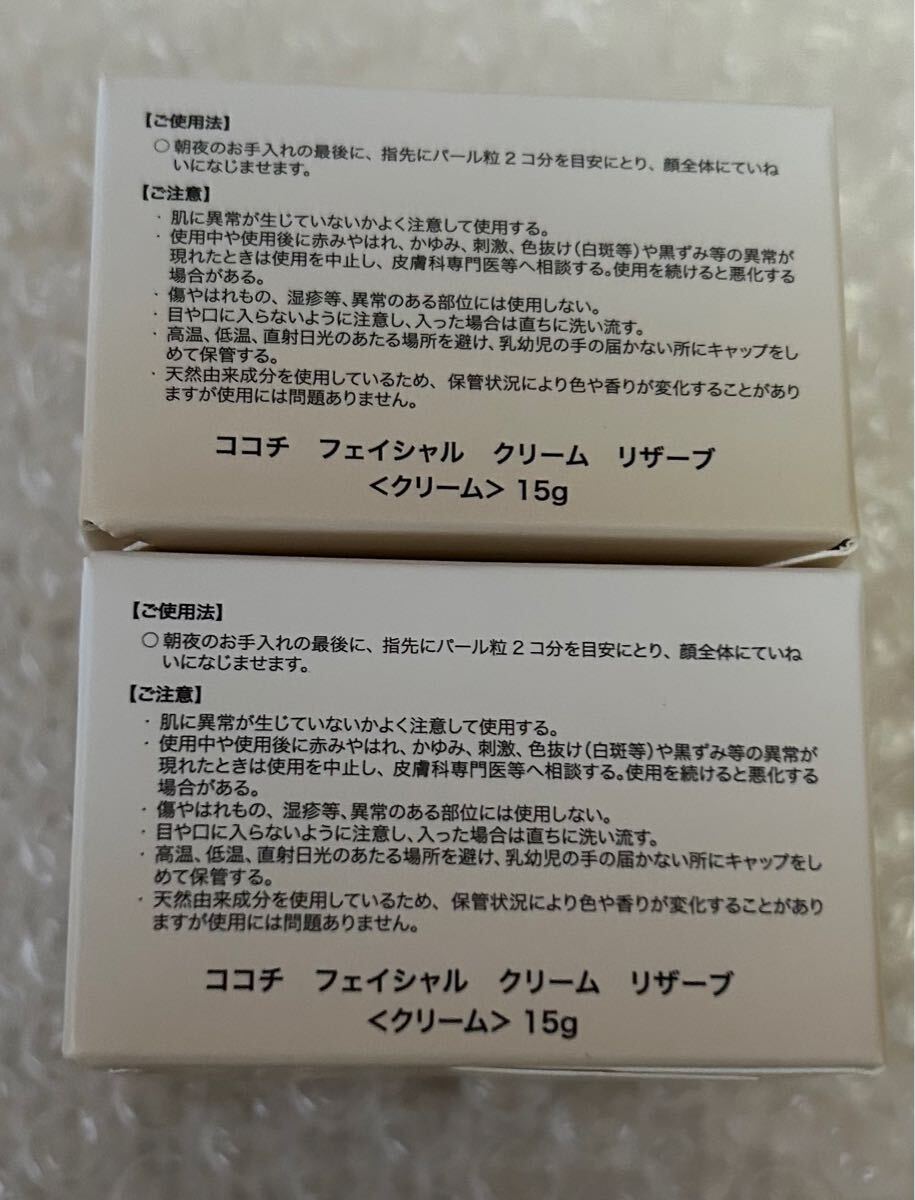 【ご使用法】
○ 朝夜のお手入れの最後に、指先にパール粒2コ分を目安にとり、顔全体にていね
いになじませます。
【ご注意】
・肌に異常が生じていないかよく注意して使用する。
・使用中や使用後に赤みやはれ、かゆみ、刺激、色抜け(白斑等)や黒ずみ等の異常が
現れたときは使用を中止し、皮膚科専門医等へ相談する。使用を続けると悪化する
場合がある。
・傷やはれもの、湿疹等、異常のある部位には使用しない。
・目や口に入らないように注意し、入った場合は直ちに洗い流す。
・高温、低温、直射日光のあたる場所を避け、乳幼児の手の届かない所にキャップをし
めて保管する。
・天然由来成分を使用しているため、保管状況により色や香りが変化することがあり
ますが使用には問題ありません。
ココチ フェイシャル クリーム リザーブ
<クリーム> 15g
【ご使用法】
○ 朝夜のお手入れの最後に、指先にパール粒2コ分を目安にとり、顔全体にていね
いになじませます。
【ご注意】
・肌に異常が生じていないかよく注意して使用する。
・使用中や使用後に赤みやはれ、かゆみ、刺激、色抜け(白斑等)や黒ずみ等の異常が
現れたときは使用を中止し、皮膚科専門医等へ相談する。使用を続けると悪化する
場合がある。
・傷やはれもの、湿疹等、異常のある部位には使用しない。
・目や口に入らないように注意し、入った場合は直ちに洗い流す。
・高温、低温、直射日光のあたる場所を避け、乳幼児の手の届かない所にキャップをし
めて保管する。
・天然由来成分を使用しているため、保管状況により色や香りが変化することがあり
ますが使用には問題ありません。
ココチ フェイシャル クリーム リザーブ
<クリーム> 15g